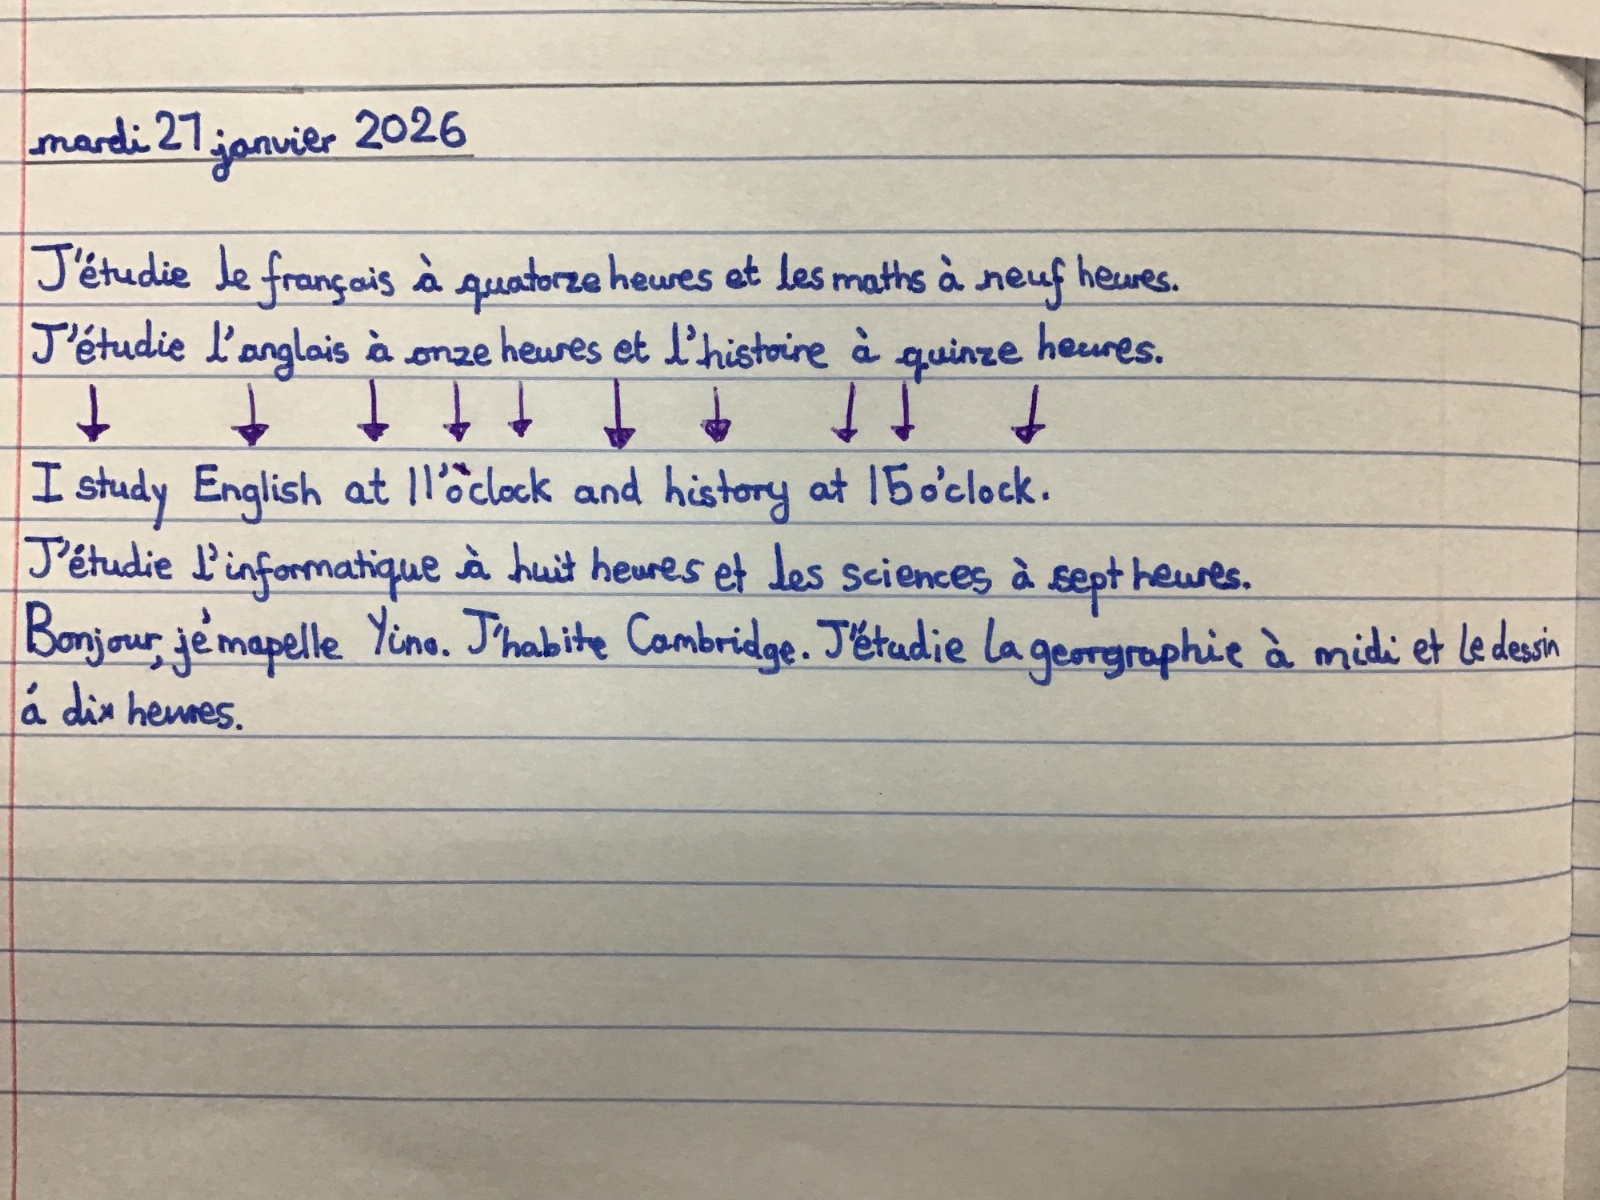 mardi 27 janvier 2026
J'étudie le français à quatorze heures et les maths à neuf heures.
J'étudie l'anglais à onze heures et l'histoire à quinze heures.
I study English at 11 o'clock and history at 15 o'clock.
J'étudie l'informatique à huit heures et les sciences à sept heures.
Bonjour, je'mapelle Yino. J'habite Cambridge. J'étudie la georgraphie à midi et le dessin
á dix heures.